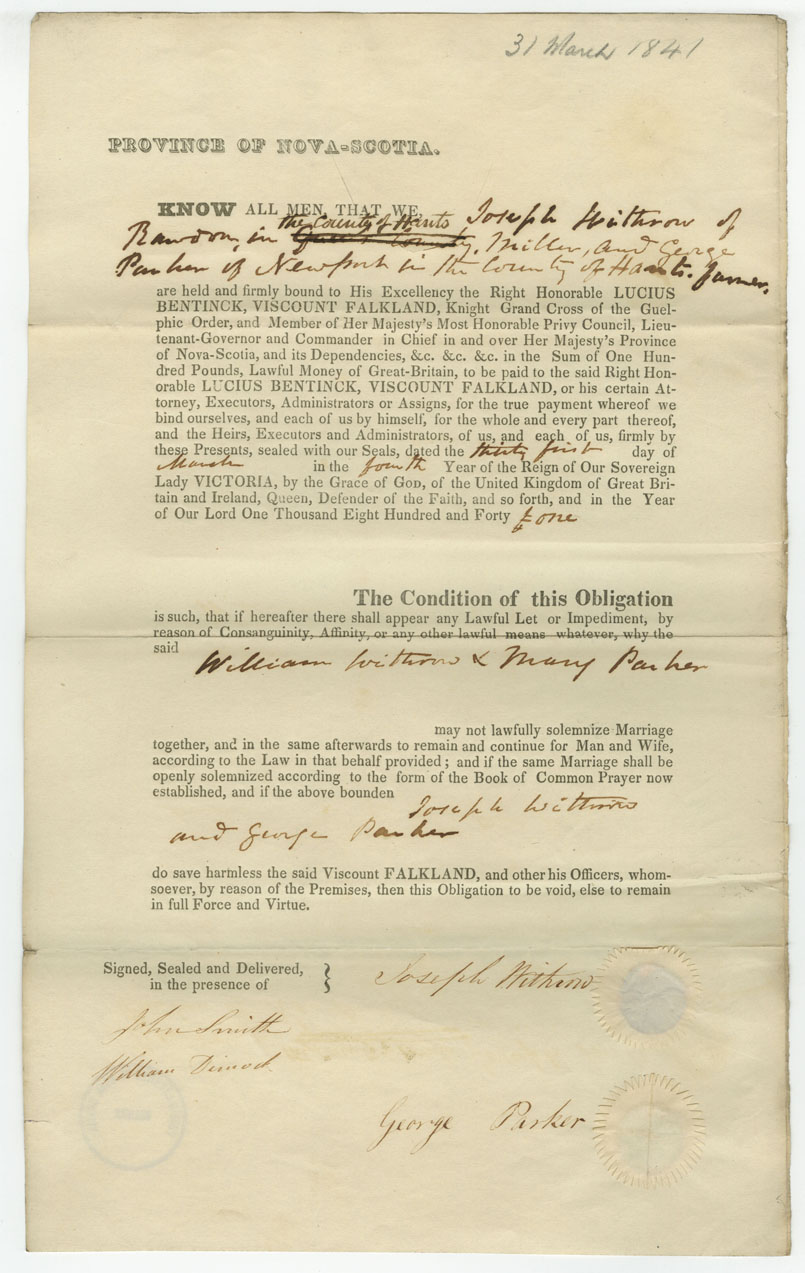 31 March 1841
PROVINCE OF NOVA-SCOTIA.
KNOW ALL MEN, THAT WE, Joseph Withrow of
the County of Hants
Rawdon, in Queens County, Miller, and George
Parker of Newport in the County of Hants. farmer,
are held and firmly bound to His Excellency the Right Honorable LUCIUS
BENTINCK, VISCOUNT FALKLAND, Knight Grand Cross of the Guel-
phic Order, and Member of Her Majesty's Most Honorable Privy Council, Lieu-
tenant-Governor and Commander in Chief in and over Her Majesty's Province
of Nova-Scotia, and its Dependencies, &c. &c. &c. in the Sum of One Hun-
dred Pounds, Lawful Money of Great-Britain, to be paid to the said Right Hon-
orable LUCIUS BENTINCK, VISCOUNT FALKLAND, or his certain At-
torney, Executors, Administrators or Assigns, for the true payment whereof we
bind ourselves, and each of us by himself, for the whole and every part thereof,
and the Heirs, Executors and Administrators, of us, and each of us, firmly by
these Presents, sealed with our Seals, dated the thirty first day of
March in the fourth Year of the Reign of Our Sovereign
Lady VICTORIA, by the Grace of GOD, of the United Kingdom of Great Bri-
tain and Ireland, Queen, Defender of the Faith, and so forth, and in the Year
of Our Lord One Thousand Eight Hundred and Forty one
The Condition of this Obligation
is such, that if hereafter there shall appear any Lawful Let or Impediment, by
reason of Consanguinity, Affinity, or any other lawful means whatever, why the
said William Withrow & Mary Parker
may not lawfully solemnize Marriage
together, and in the same afterwards to remain and continue for Man and Wife,
according to the Law in that behalf provided; and if the same Marriage shall be
openly solemnized according to the form of the Book of Common Prayer now
established, and if the above bounden Joseph Withrow
and George Parker
do save harmless the said Viscount FALKLAND, and other his Officers, whom-
soever, by reason of the Premises, then this Obligation to be void, else to remain
in full Force and Virtue.
Signed, Sealed and Delivered, } Joseph Withrow
in the presence of
John Smith
William Dimock
George Parker